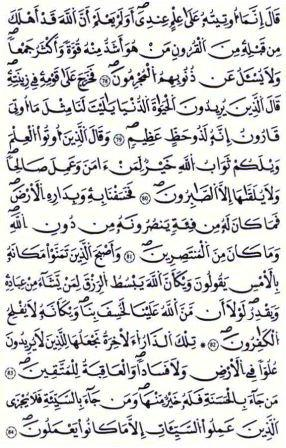 قَالَ إِنَّمَا أُوتِيتُهُ عَلَىٰ عِلْمٍ عِندِي أَوَلَمْ يَعْلَمْ أَنَّ اللَّهَ قَدْ أَهْلَكَ
مِن قَبْلِهِ مِنَ الْقُرُونِ مَنْ هُوَ أَشَدُّ مِنْهُ قُوَّةً وَأَكْثَرُ جَمْعًا
وَلَا يُسْـَٔلُ عَن ذُنُوبِهِمُ الْمُجْرِمُونَ ۝٧٨ فَخَرَجَ عَلَىٰ قَوْمِهِ فِي زِينَتِهِ
قَالَ الَّذِينَ يُرِيدُونَ الْحَيَاةَ الدُّنْيَا يَا لَيْتَ لَنَا مِثْلَ مَا أُوتِيَ
قَارُونُ إِنَّهُ لَذُو حَظٍّ عَظِيمٍ ۝٧٩ وَقَالَ الَّذِينَ أُوتُوا الْعِلْمَ
وَيْلَكُمْ ثَوَابُ اللَّهِ خَيْرٌ لِّمَنْ ءَامَنَ وَعَمِلَ صَالِحًا
وَلَا يُلَقَّاهَا إِلَّا الصَّابِرُونَ ۝٨٠ فَخَسَفْنَا بِهِ وَبِدَارِهِ الْأَرْضَ
فَمَا كَانَ لَهُ مِن فِئَةٍ يَنصُرُونَهُ مِن دُونِ اللَّهِ
وَمَا كَانَ مِنَ الْمُنتَصِرِينَ ۝٨١ وَأَصْبَحَ الَّذِينَ تَمَنَّوْا مَكَانَهُ
بِالْأَمْسِ يَقُولُونَ وَيْكَأَنَّ اللَّهَ يَبْسُطُ الرِّزْقَ لِمَن يَشَاءُ مِنْ عِبَادِهِ
وَيَقْدِرُ لَوْلَا أَن مَّنَّ اللَّهُ عَلَيْنَا لَخُسِفَ بِنَا وَيْكَأَنَّهُ لَا يُفْلِحُ
الْكَافِرُونَ ۝٨٢ تِلْكَ الدَّارُ الْآخِرَةُ نَجْعَلُهَا لِلَّذِينَ لَا يُرِيدُونَ
عُلُوًّا فِي الْأَرْضِ وَلَا فَسَادًا وَالْعَاقِبَةُ لِلْمُتَّقِينَ ۝٨٣
مَن جَاءَ بِالْحَسَنَةِ فَلَهُ خَيْرٌ مِّنْهَا وَمَن جَاءَ بِالسَّيِّئَةِ فَلَا يُجْزَى
الَّذِينَ عَمِلُوا السَّيِّـَٔاتِ إِلَّا مَا كَانُوا يَعْمَلُونَ ۝٨٤